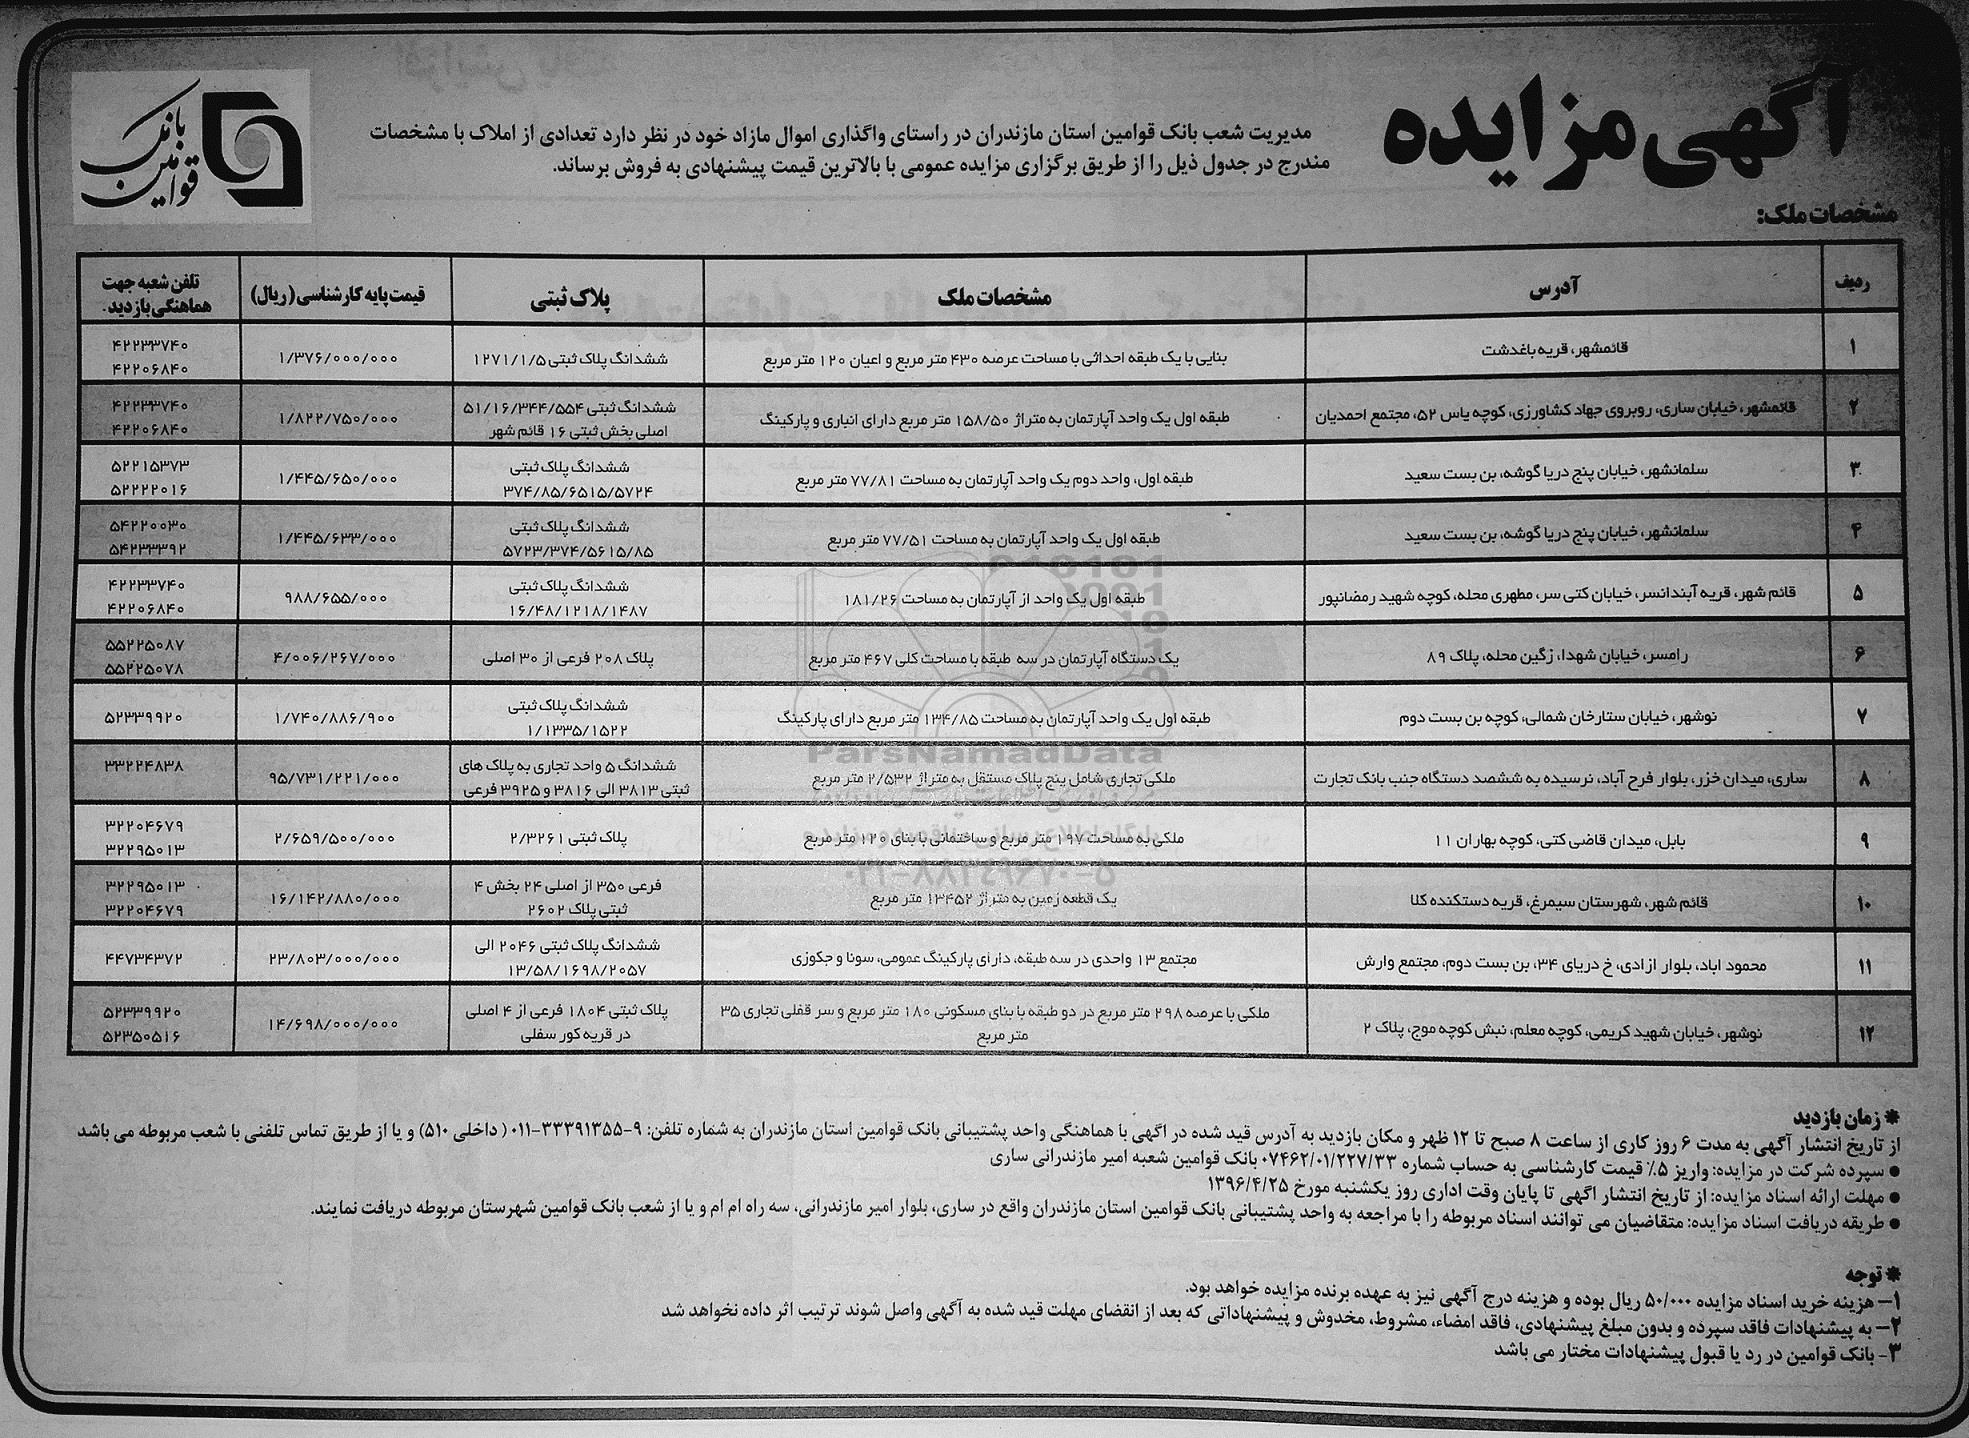 آگهی مزایده
مدیریت شعب بانک قوامین استان مازندران در راستای واگذاری اموال مازاد خود در نظر دارد تعدادی از املاک با مشخصات
مندرج در جدول ذیل را از طریق برگزاری مزایده عمومی با بالاترین قیمت پیشنهادی به فروش برساند.
بانک قوامین
مشخصات ملک:
ردیف آدرس مشخصات ملک پلاک ثبتی قیمت پایه کارشناسی (ریال) تلفن شعبه جهت هماهنگی بازدید.
۱ قائمشهر، قریه باغدشت بنایی با یک طبقه احداثی با مساحت عرصه ۴۳۰ متر مربع و اعیان ۱۲۰ متر مربع ششدانگ پلاک ثبتی ۱۲۷۱/۱/۵ ۱/۳۷۶/۰۰۰/۰۰۰ ۴۲۲۳۳۷۴۰ ۴۲۲۰۶۸۴۰
۲ قائمشهر، خیابان ساری، روبروی جهاد کشاورزی، کوچه یاس ۵۲، مجتمع احمدیان طبقه اول یک واحد آپارتمان به متراژ ۱۵۸/۵۰ متر مربع دارای انباری و پارکینگ ششدانگ ثبتی ۵۱/۱۶/۳۴۴/۵۵۴ اصلی بخش ثبتی ۱۶ قائم شهر ۱/۸۲۲/۷۵۰/۰۰۰ ۴۲۲۳۳۷۴۰ ۴۲۲۰۶۸۴۰
۳ سلمانشهر، خیابان پنج دریا گوشه، بن بست سعید طبقه اول، واحد دوم یک واحد آپارتمان به مساحت ۷۷/۸۱ متر مربع ششدانگ پلاک ثبتی ۳۷۴/۸۵/۶۵۱۵/۵۷۲۴ ۱/۴۴۵/۶۵۰/۰۰۰ ۵۲۲۱۵۳۷۳ ۵۲۲۲۲۰۱۶
۴ سلمانشهر، خیابان پنج دریا گوشه، بن بست سعید طبقه اول یک واحد آپارتمان به مساحت ۷۷/۵۱ متر مربع ششدانگ پلاک ثبتی ۵۷۲۳/۳۷۴/۵۶۱۵/۸۵ ۱/۴۴۵/۶۳۳/۰۰۰ ۵۴۲۲۰۰۳۰ ۵۴۲۳۳۳۹۲
۵ قائم شهر، قریه آبندانسر، خیابان کتی سر، مطهری محله، کوچه شهید رمضانپور طبقه اول یک واحد از آپارتمان به مساحت ۱۸۱/۲۶ ششدانگ پلاک ثبتی ۱۶/۴۸/۱۲۱۸/۱۴۸۷ ۹۸۸/۶۵۵/۰۰۰ ۴۲۲۳۳۷۴۰ ۴۲۲۰۶۸۴۰
۶ رامسر، خیابان شهدا، زگین محله، پلاک ۸۹ یک دستگاه آپارتمان در سه طبقه با مساحت کلی ۴۶۷ متر مربع پلاک ۲۰۸ فرعی از ۳۰ اصلی ۴/۰۰۶/۲۶۷/۰۰۰ ۵۵۲۲۵۰۸۷ ۵۵۲۲۵۰۷۸
۷ نوشهر، خیابان ستارخان شمالی، کوچه بن بست دوم طبقه اول یک واحد آپارتمان به مساحت ۱۳۴/۸۵ متر مربع دارای پارکینگ ششدانگ پلاک ثبتی ۱/۱۳۳۵/۱۵۲۲ ۱/۷۴۰/۸۸۶/۹۰۰ ۵۲۳۳۹۹۲۰
۸ ساری، میدان خزر، بلوار فرح آباد، نرسیده به ششصد دستگاه جنب بانک تجارت ملکی تجاری شامل پنج پلاک مستقل به متراژ ۲/۵۳۲ متر مربع ششدانگ ۵ واحد تجاری به پلاک های ثبتی ۳۸۱۳ الی ۳۸۱۶ و ۳۹۲۵ فرعی ۹۵/۷۳۱/۲۲۱/۰۰۰ ۳۳۲۲۴۸۳۸
۹ بابل، میدان قاضی کتی، کوچه بهاران ۱۱ ملکی به مساحت ۱۹۷ متر مربع و ساختمانی با بنای ۱۲۰ متر مربع پلاک ثبتی ۲/۳۲۶۱ ۲/۶۵۹/۵۰۰/۰۰۰ ۳۲۲۰۴۶۷۹ ۳۲۲۹۵۰۱۳
۱۰ قائم شهر، شهرستان سیمرغ، قریه دستکنده کلا یک قطعه زمین به متراژ ۱۳۴۵۲ متر مربع فرعی ۳۵۰ از اصلی ۲۴ بخش ۴ ثبتی پلاک ۲۶۰۲ ۱۶/۱۴۲/۸۸۰/۰۰۰ ۳۲۲۹۵۰۱۳ ۳۲۲۰۴۶۷۹
۱۱ محمود اباد، بلوار ازادی، خ دریای ۳۴، بن بست دوم، مجتمع وارش مجتمع ۱۳ واحدی در سه طبقه، دارای پارکینگ عمومی، سونا و جکوزی ششدانگ پلاک ثبتی ۲۰۴۶ الی ۱۳/۵۸/۱۶۹۸/۲۰۵۷ ۲۳/۸۰۳/۰۰۰/۰۰۰ ۴۴۷۳۴۳۷۲
۱۲ نوشهر، خیابان شهید کریمی، کوچه معلم، نبش کوچه موج، پلاک ۲ ملکی با عرصه ۲۹۸ متر مربع در دو طبقه با بنای مسکونی ۱۸۰ متر مربع و سر قفلی تجاری ۳۵ متر مربع پلاک ثبتی ۱۸۰۴ فرعی از ۴ اصلی در قریه کور سفلی ۱۴/۶۹۸/۰۰۰/۰۰۰ ۵۲۳۳۹۹۲۰ ۵۲۳۵۰۵۱۶
ParsNamadData
۰۲۱-۸۸۳۴۹۶۷۰-۵
* زمان بازدید
از تاریخ انتشار آگهی به مدت ۶ روز کاری از ساعت ۸ صبح تا ۱۲ ظهر و مکان بازدید به آدرس قید شده در اگهی با هماهنگی واحد پشتیبانی بانک قوامین استان مازندران به شماره تلفن: ۹-۳۳۳۹۱۳۵۵-۰۱۱ ( داخلی ۵۱۰) و یا از طریق تماس تلفنی با شعب مربوطه می باشد
● سپرده شرکت در مزایده: واریز ۵٪ قیمت کارشناسی به حساب شماره ۰۷۴۶۲/۰۱/۲۲۷/۳۳ بانک قوامین شعبه امیر مازندرانی ساری
● مهلت ارائه اسناد مزایده: از تاریخ انتشار اگهی تا پایان وقت اداری روز یکشنبه مورخ ۱۳۹۶/۴/۲۵
● طریقه دریافت اسناد مزایده: متقاضیان می توانند اسناد مربوطه را با مراجعه به واحد پشتیبانی بانک قوامین استان مازندران واقع در ساری، بلوار امیر مازندرانی، سه راه ام ام و یا از شعب بانک قوامین شهرستان مربوطه دریافت نمایند.
* توجه
۱- هزینه خرید اسناد مزایده ۵۰/۰۰۰ ریال بوده و هزینه درج آگهی نیز به عهده برنده مزایده خواهد بود.
۲- به پیشنهادات فاقد سپرده و بدون مبلغ پیشنهادی، فاقد امضاء، مشروط، مخدوش و پیشنهاداتی که بعد از انقضای مهلت قید شده به آگهی واصل شوند ترتیب اثر داده نخواهد شد
۳- بانک قوامین در رد یا قبول پیشنهادات مختار می باشد